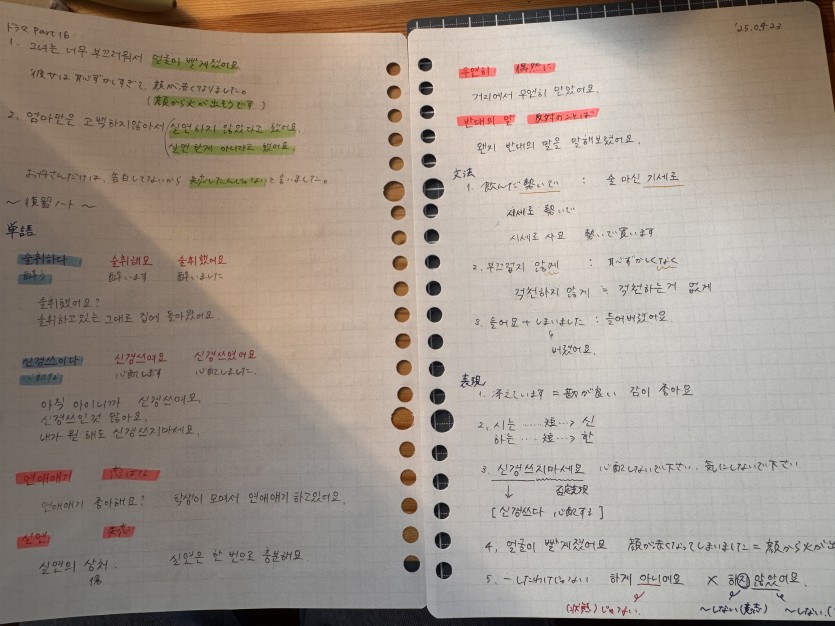 ドラマ Part 16
1. 그녀는 너무 부끄러워서 얼굴이 빨게졌어요
彼女は恥ずかしすぎて、顔が赤くなりました。
(顔から火が出そうです)
2. 엄마만은 고백하지않아서 실연하지 않았다고 했어요.
실연한게 아니라고 했어요.
お母さんだけは、告白してないから失恋したんじゃないと言いました。
~ 復習ノート ~
単語
술취하다 술취해요 술취했어요
酔う 酔います 酔いました
술취했어요?
술취하고있는 그대로 집에 돌아왔어요.
신경쓰이다 신경쓰여요 신경쓰였어요
心配します 心配しました.
아직 아이니까 신경쓰여요.
신경쓰인것 많아요.
내가 뭘 해도 신경쓰지마세요.
연애얘기
연애얘기 좋아해요? 학생이 모여서 연애얘기 하고있어요.
실연 失恋
실연의 상처. 실연은 한 번으로 충분해요
傷
'25.09.23
우연히 偶然に
거리에서 우연히 만났어요.
반대의 말 反対のことば
왠지 반대의 말을 말해보렸어요.
文法
1. 飲んだ勢いで : 술 마신 기세로
勢いで
시세로 사요 勢いで買います
2. 부끄럽지 않게 : 恥ずかしくなく
걱천하지 않게 = 걱천하는거 없게
3. 들어요 + しまいました : 들어버렸어요.
버렸어요.
表現
1. 冴えています = 勘が良い 감이 좋아요
2. 시는 ...... 短...> 신
하는 .... 短...> 한
3. 신경쓰지마세요 心配しないで下さい. 気にしないで下さい
↓
[신경쓰다 心配する]
4. 얼굴이 빨게졌어요 顔が赤くなってしまいました = 顔から火が出
5. ~したわけじゃない 하게 아니에요 × 하지 않았어요.
(状態) じゃない. ~しない(意志) ~しない.(